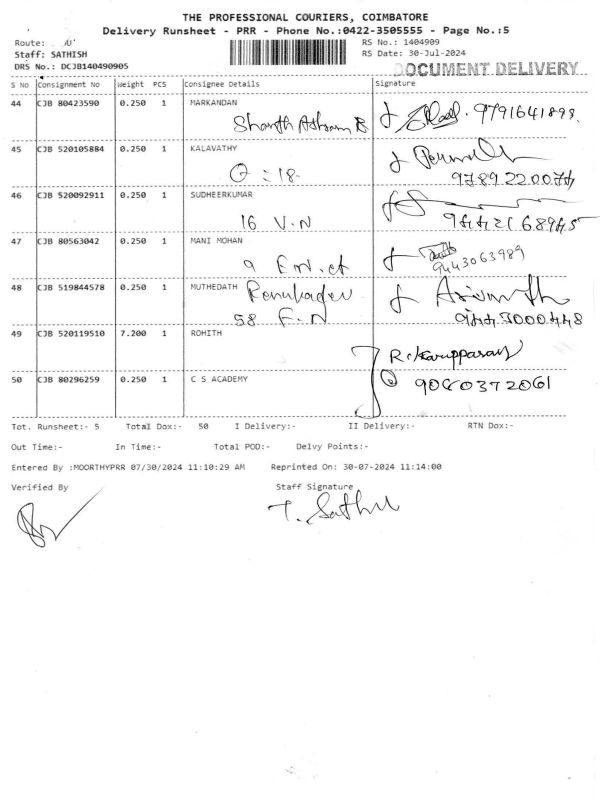 THE PROFESSIONAL COURIERS, COIMBATORE
Delivery Runsheet - PRR - Phone No.:0422-3505555 - Page No.:5
Route:
RS No.: 1404909
Staff: SATHISH
RS Date: 30-Jul-2024
DRS No.: DCJB140490905
DOCUMENT DELIVERY
S No Consignment No Weight PCS Consignee Details Signature
44 CJB 80423590 0.250 1 MARKANDAN
9791641899.
45 CJB 520105884 0.250 1 KALAVATHY
:18
9789220077
46 CJB 520092911 0.250 1 SUDHEERKUMAR
16 V.N
47 CJB 80563042 0.250 1 MANI MOHAN
9
9443063989
48 CJB 519844578 0.250 1 MUTHEDATH
58 F.N
49 CJB 520119510 7.200 1 ROHITH
R. Karupparay
50 CJB 80296259 0.250 1 C S ACADEMY
Tot. Runsheet:- 5 Total Dox:- 50 I Delivery:- II Delivery:- RTN Dox:-
Out Time:- In Time:- Total POD:- Delvy Points:-
Entered By :MOORTHYPRR 07/30/2024 11:10:29 AM Reprinted On: 30-07-2024 11:14:00
Verified By Staff Signature